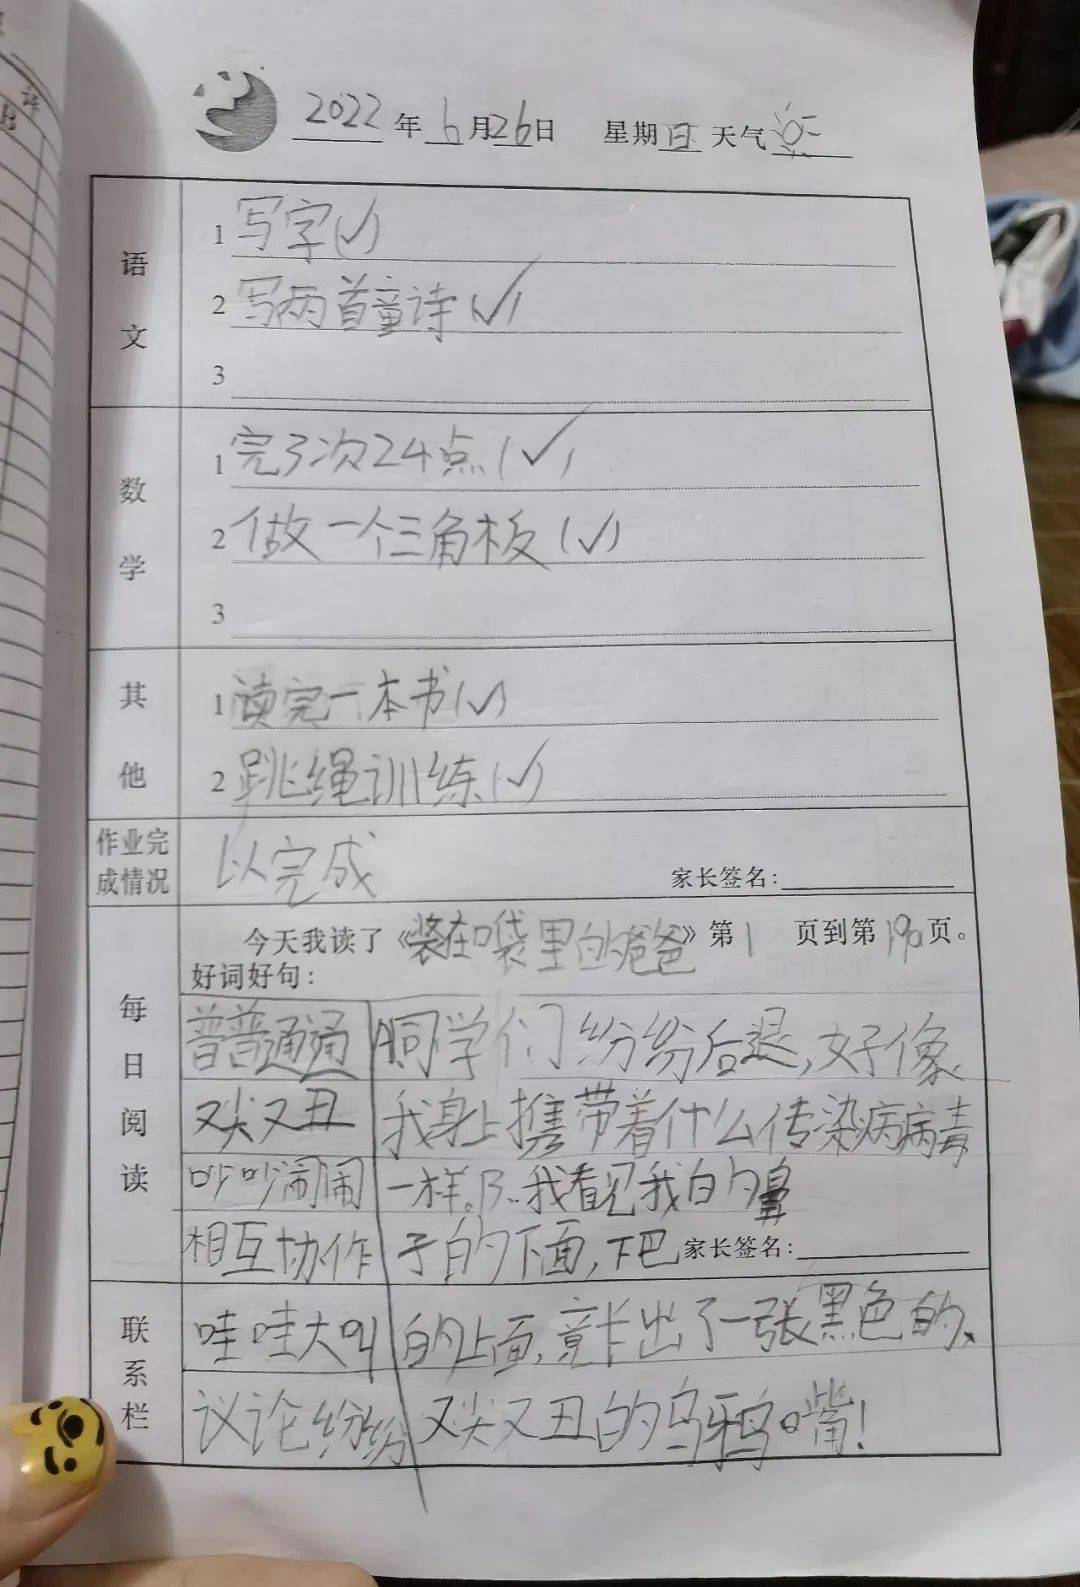 2022年6月26日 星期日 天气
语文
1 写字(✓)
2 写两首童诗(✓)
3
数学
1 完3次24点(✓)
2 做一个三角板(✓)
3
其他
1 读完一本书(✓)
2 跳绳训练(✓)
作业完成情况
以完成
家长签名:
每日阅读
今天我读了《装在口袋里的爸爸》第1页到第190页。
好词好句:
普普通通 A同学们纷纷后退,好像
又尖又丑 我身上携带着什么传染病病毒
吵吵闹闹 一样。B..我看见我的鼻
相互协作 子的下面,下巴 家长签名:
联系栏
哇哇大叫 的上面,竟卡出了一张黑色的、
议论纷纷 又尖又丑的乌鸦嘴!